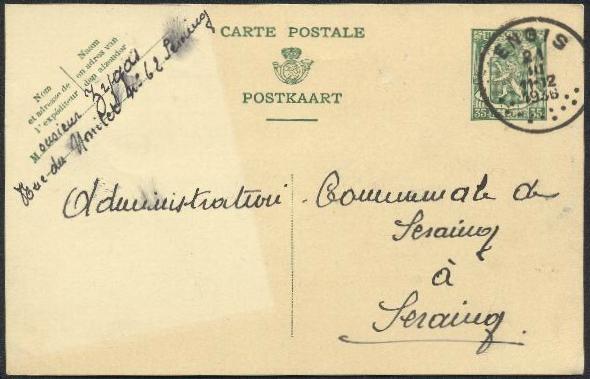 CARTE POSTALE
POSTKAART
Naam
en adres van
den afzender
Nom
et adresse de
l'expéditeur
Monsieur
Rue du N° 62 Seraing
ENGIS
1936
35 35
Administration Communale de
Seraing
à
Seraing